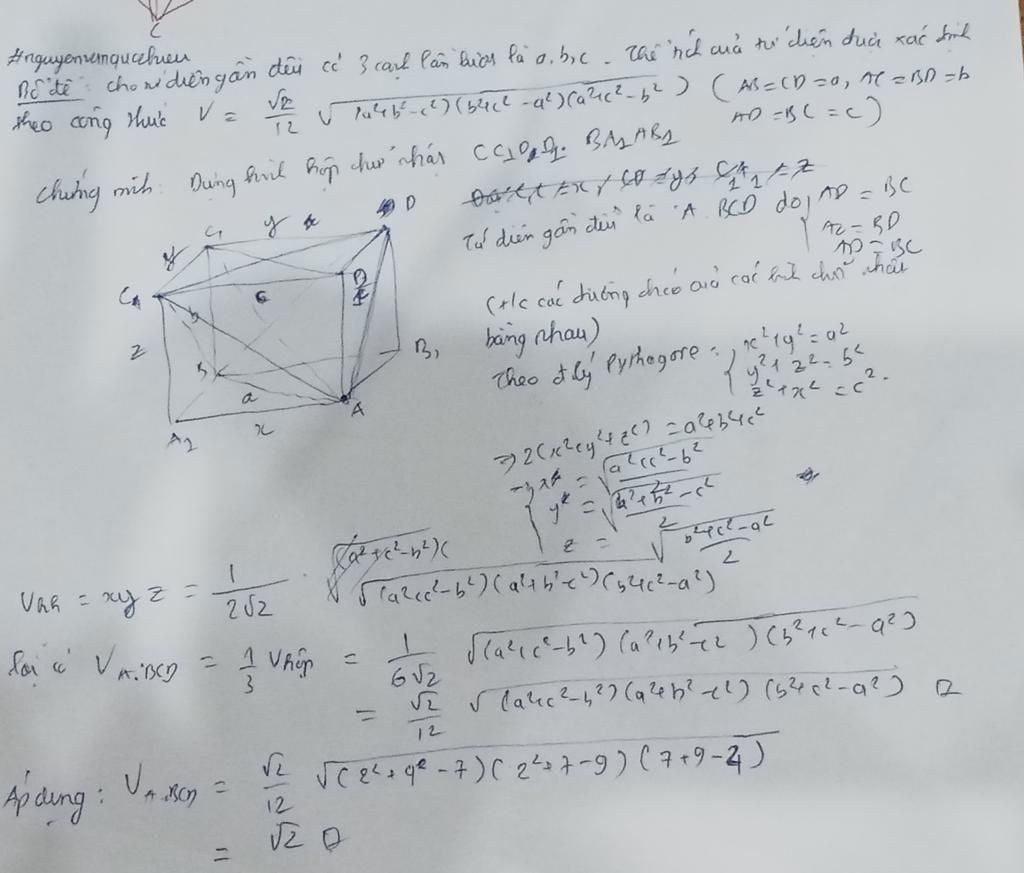 C
#nguyenvanquochieu
Bổ đề: cho tứ diện gần đều có 3 cạnh lần lượt là a, b, c. Thể tích của tứ diện được xác định
theo công thức V = √2/12 √(a²+b²-c²)(b²+c²-a²)(a²+c²-b²) (AB=CD=a, AC=BD=b
AD=BC=c)
Chứng minh: Dựng hình hộp chữ nhật
Tứ diện gần đều là A.BCD do AD = BC
AC = BD
AD = BC
(t/c các đường chéo của các hình chữ nhật
bằng nhau)
Theo đ.lý Pythagore: x²+y²=a²
y²+z²=b²
z²+x²=c².
C₁ y x D
y
z
a A
A₂ x
B₁
⇒ 2(x²+y²+z²) = a²+b²+c²
x = √(a²+c²-b²)/2
y = √(a²+b²-c²)/2
z = √(b²+c²-a²)/2
= xyz = 1/2√2 · √(a²+c²-b²)(a²+b²-c²)(b²+c²-a²)
lại có V A.BCD = 1/3 Vhộp = 1/6√2 √(a²+c²-b²)(a²+b²-c²)(b²+c²-a²)
= √2/12 √(a²+c²-b²)(a²+b²-c²)(b²+c²-a²)
Áp dụng: V A.BCD = √2/12 √(2²+9-7)(2²+7-9)(7+9-4)
= √2